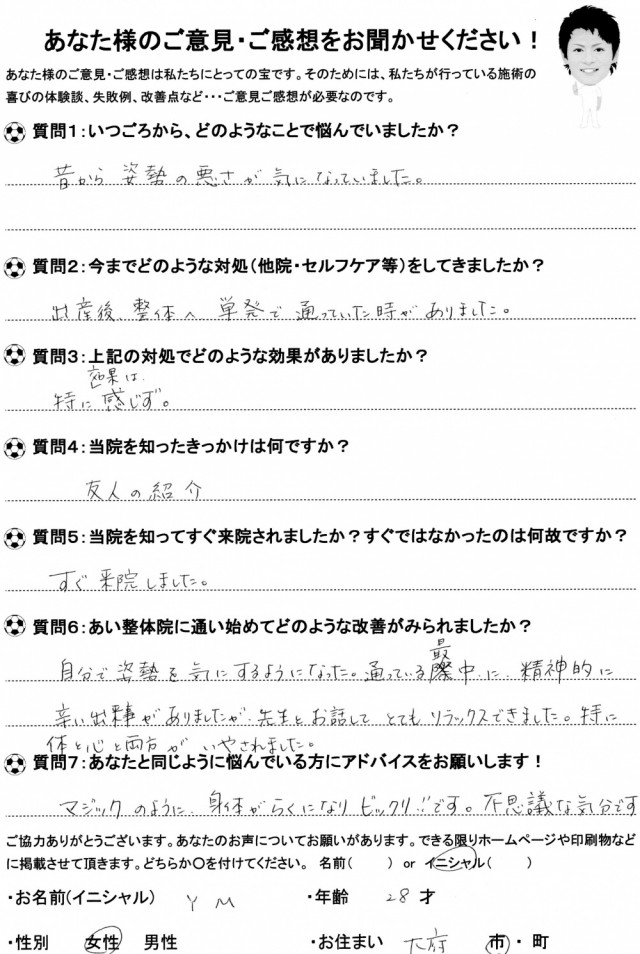 あなた様のご意見・ご感想をお聞かせください！
あなた様のご意見・ご感想は私たちにとっての宝です。そのためには、私たちが行っている施術の
喜びの体験談、失敗例、改善点など・・・ご意見ご感想が必要なのです。
質問1：いつごろから、どのようなことで悩んでいましたか？
昔から 姿勢の悪さが 気になっていました。
質問2：今までどのような対処（他院・セルフケア等）をしてきましたか？
出産後、整体へ 単発で 通っていた時が ありました。
質問3：上記の対処でどのような効果がありましたか？
効果は、
特に 感じず。
質問4：当院を知ったきっかけは何ですか？
友人の紹介
質問5：当院を知ってすぐ来院されましたか？すぐではなかったのは何故ですか？
すぐ 来院しました。
質問6：あい整体院に通い始めてどのような改善がみられましたか？
最
自分で 姿勢を 気にするようになった。通っている際中に、精神的に
辛い出来事がありましたが、先生と お話して とても リラックスできました。特に
体と心と両方が いやされました。
質問7：あなたと同じように悩んでいる方にアドバイスをお願いします！
マジックのように、身体がらくになり ビックリ!!です。不思議な気分です
ご協力ありがとうございます。あなたのお声についてお願いがあります。できる限りホームページや印刷物など
に掲載させて頂きます。どちらか〇を付けてください。 名前（ ） or イニシャル（ ）
・お名前（イニシャル） Y M ・年齢 28 才
・性別 女性 男性 ・お住まい 大府 市 ・ 町